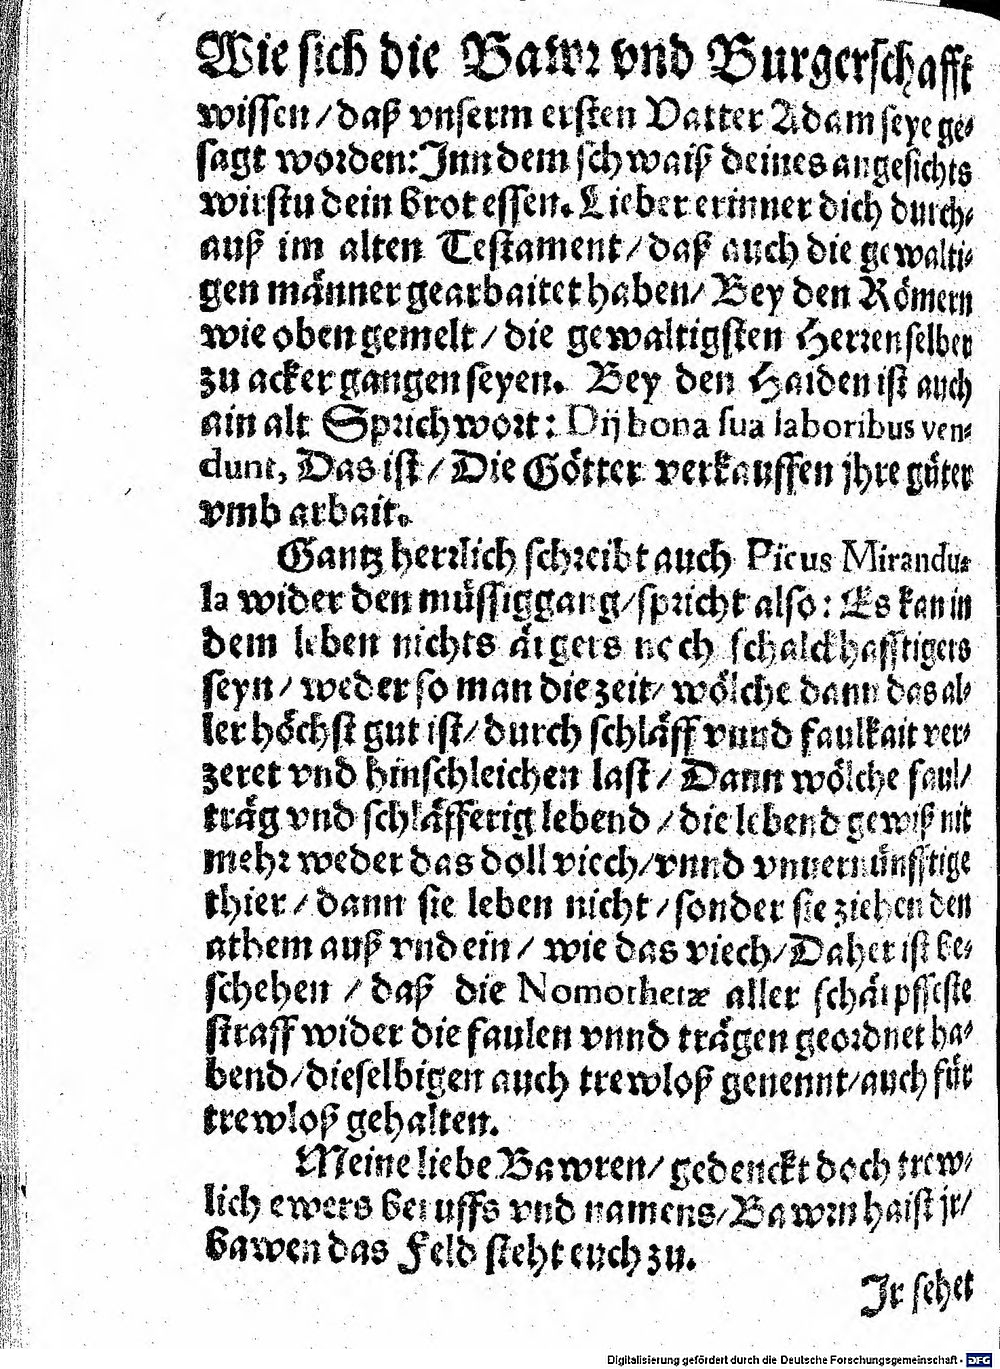 Wie sich die Bawr vnd Burgerschafft
wissen/daß vnserm ersten Vatter Adam seye ge-
sagt worden: Inn dem schwaiß deines angesichts
wirstu dein brot essen. Lieber erinner dich durch-
auß im alten Testament/daß auch die gewalti-
gen männer gearbaitet haben/ Bey den Römern
wie oben gemelt/ die gewaltigsten Herren selber
zu acker gangen seyen. Bey den Haiden ist auch
ain alt Sprichwort: Dij bona sua laboribus ven-
dunt, Das ist/ Die Götter verkauffen jhre güter
vmb arbait.
Gantz herrlich schreibt auch Picus Mirandu-
la wider den müssiggang/spricht also: Es kan in
dem leben nichts ärgers noch schalckhafftigers
seyn/ weder so man die zeit/ wölche dann das al-
ler höchst gut ist/ durch schläff vnnd faulkait ver-
zeret vnd hinschleichen last/ Dann wölche faul/
träg vnd schläfferig lebend/ die lebend gewiß nit
mehr weder das doll viech/vnnd vnuernünfftige
thier/ dann sie leben nicht/ sonder sie ziehen den
athem auß vnd ein/ wie das viech/Daher ist be-
schehen/ daß die Nomothetæ aller schärpffeste
straff wider die faulen vnnd trägen geordnet ha-
bend/dieselbigen auch trewloß genennt/auch für
trewloß gehalten.
Meine liebe Bawren/ gedenckt doch trew-
lich ewers beruffs vnd namens/Bawrn haist jr/
bawen das Feld steht euch zu.
Jr sehet
Digitalisierung gefördert durch die Deutsche Forschungsgemeinschaft - DFG